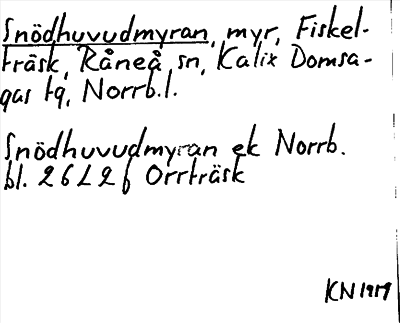 Snödhuvudmyran, myr, Fiskel-
träsk, Råneå sn, Kalix Domsa-
gas tg, Norrb.l.
Snödhuvudmyran ek Norrb.
bl. 26L2f Orrträsk
KN 1979